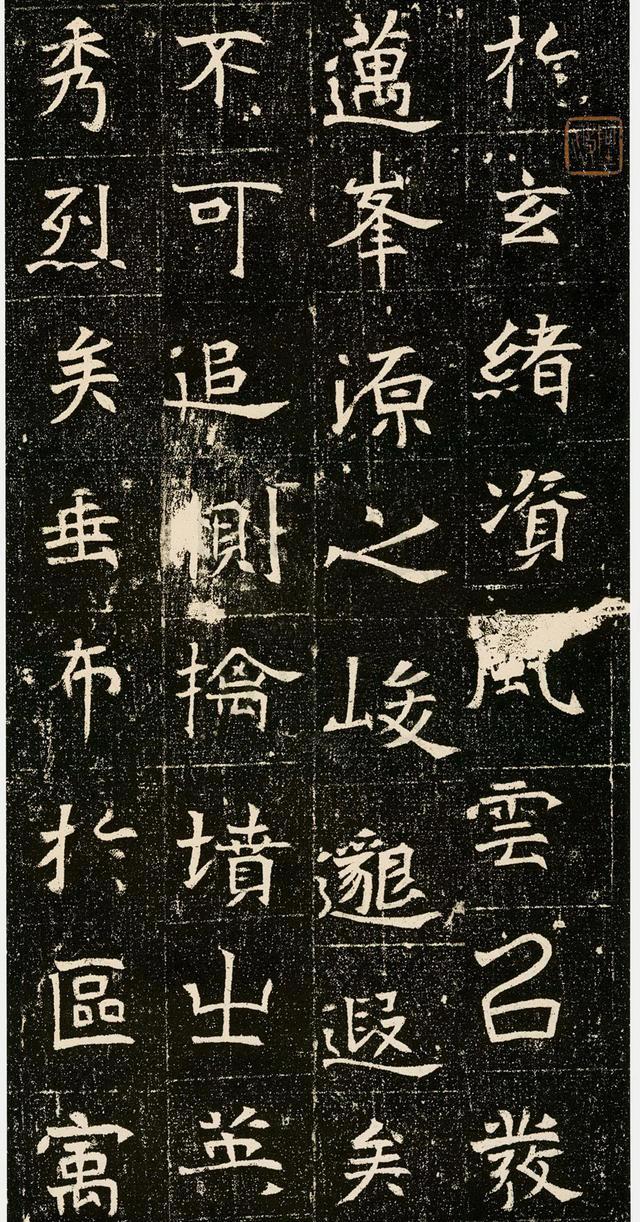 於玄緒資風雲㠯發
邁峯源之峻邈遐矣
不可追惻擒墳出英
秀烈矣垂布於區寓